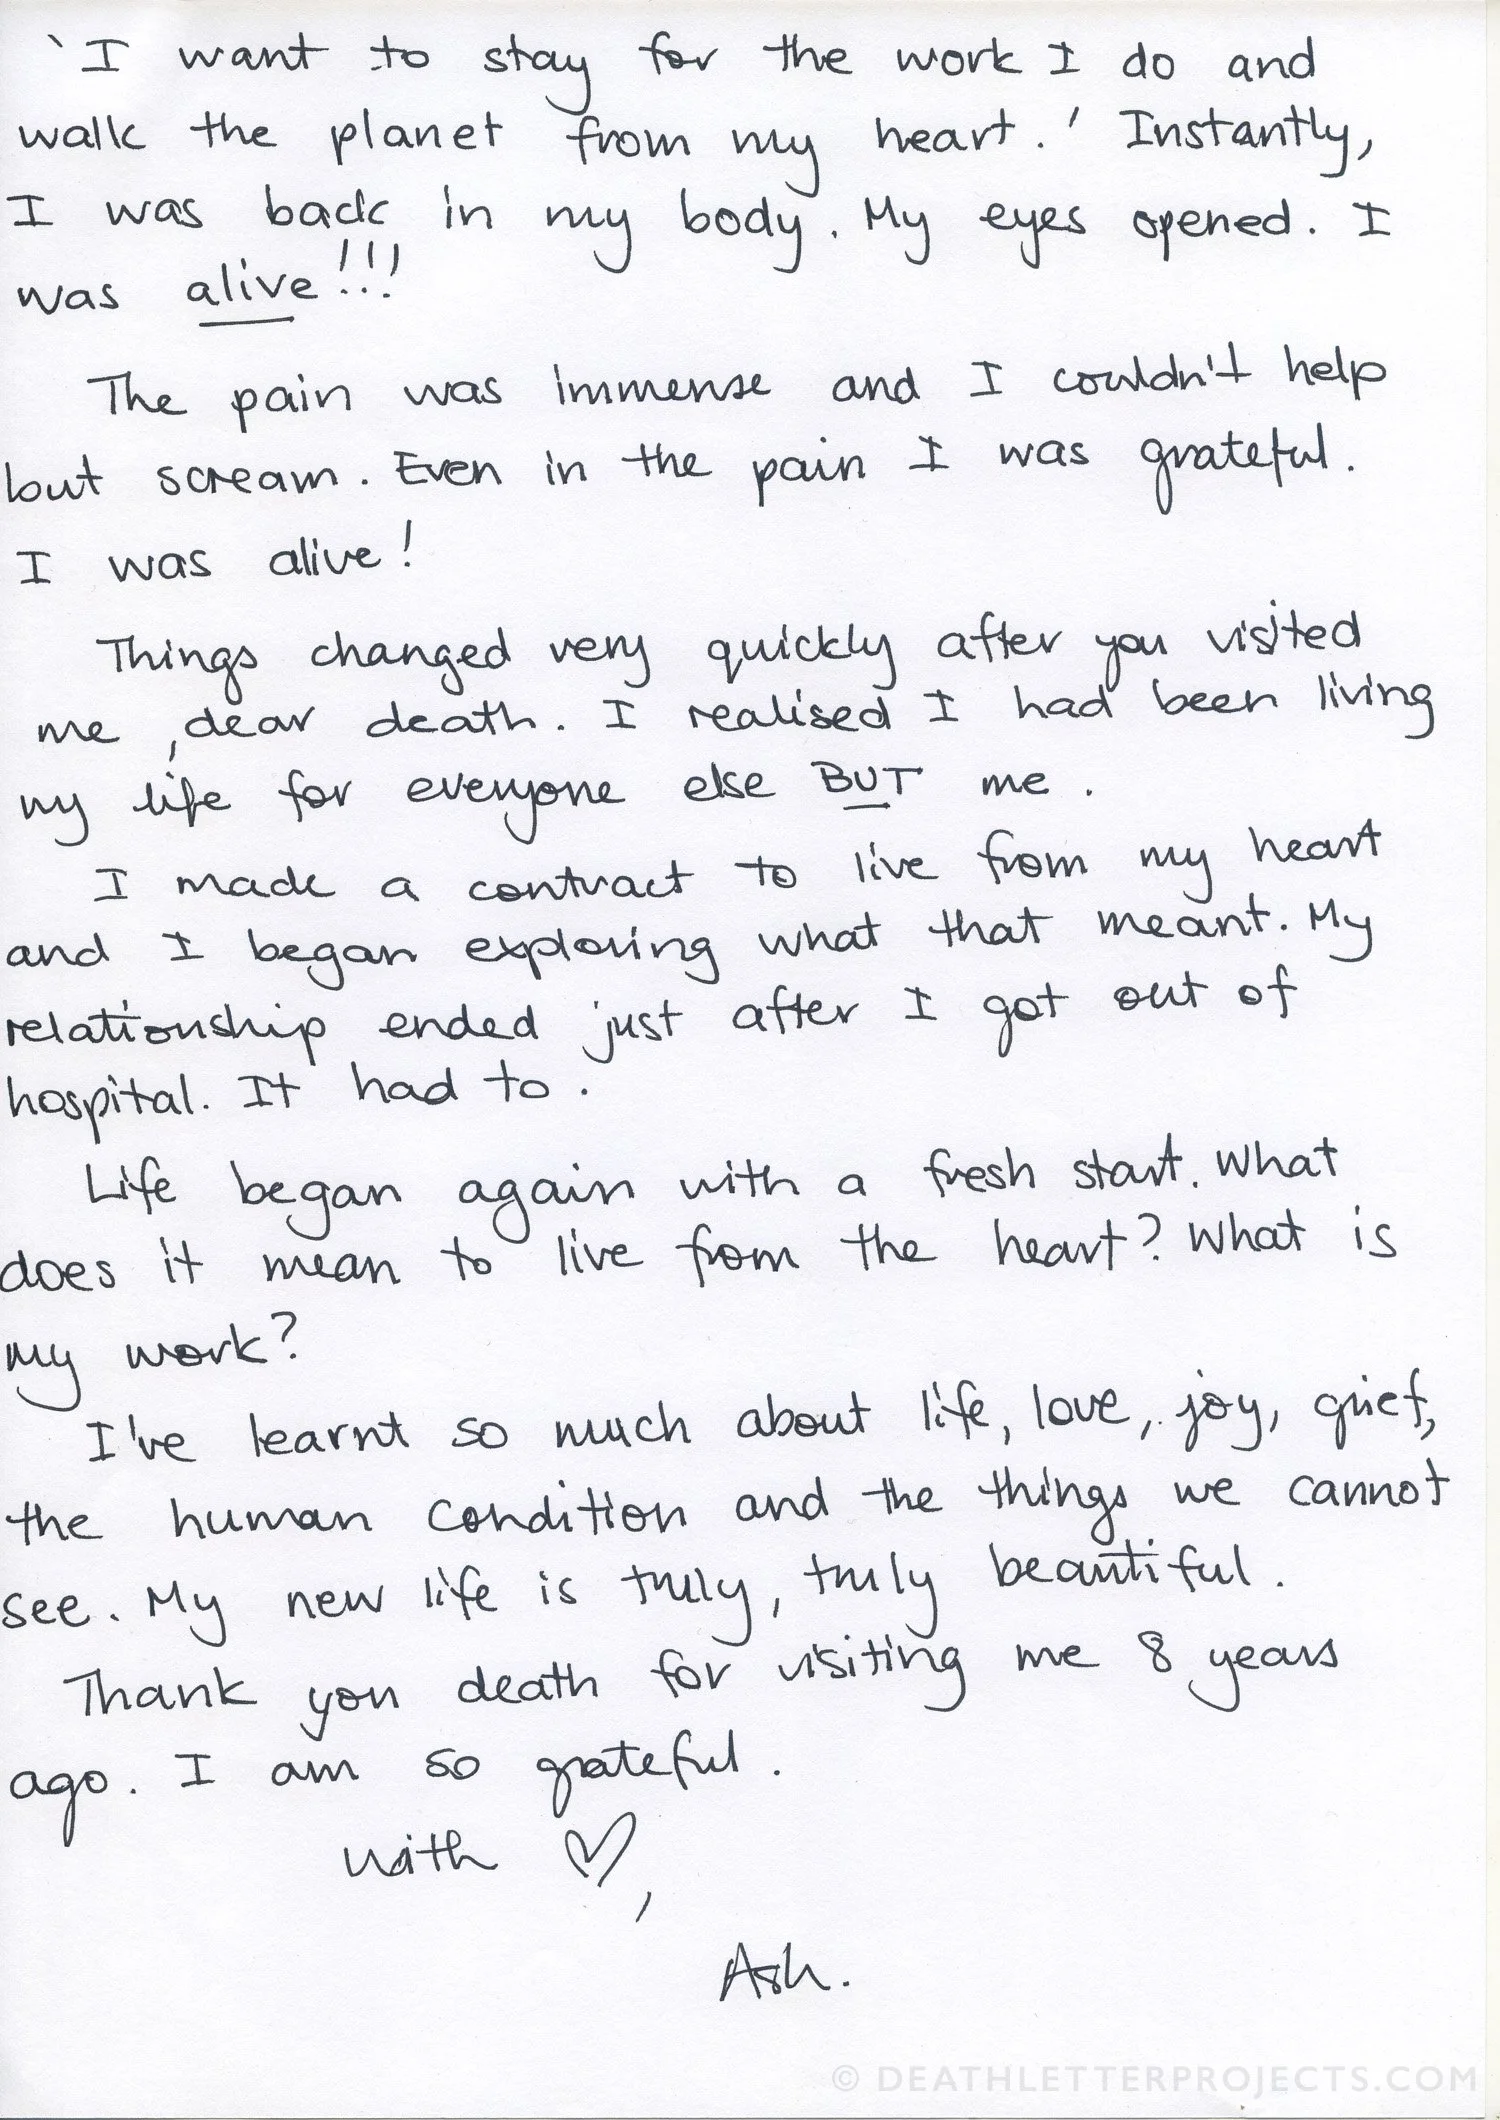 'I want to stay for the work I do and
walk the planet from my heart.' Instantly,
I was back in my body. My eyes opened. I
was alive!!!
The pain was immense and I couldn't help
but scream. Even in the pain I was grateful.
I was alive!
Things changed very quickly after you visited
me, dear death. I realised I had been living
my life for everyone else BUT me.
I made a contract to live from my heart
and I began exploring what that meant. My
relationship ended just after I got out of
hospital. It had to.
Life began again with a fresh start. What
does it mean to live from the heart? What is
my work?
I've learnt so much about life, love, joy, grief,
the human condition and the things we cannot
see. My new life is truly, truly beautiful.
Thank you death for visiting me 8 years
ago. I am so grateful.
with ♡,
Ash.
© DEATHLETTERPROJECTS.COM